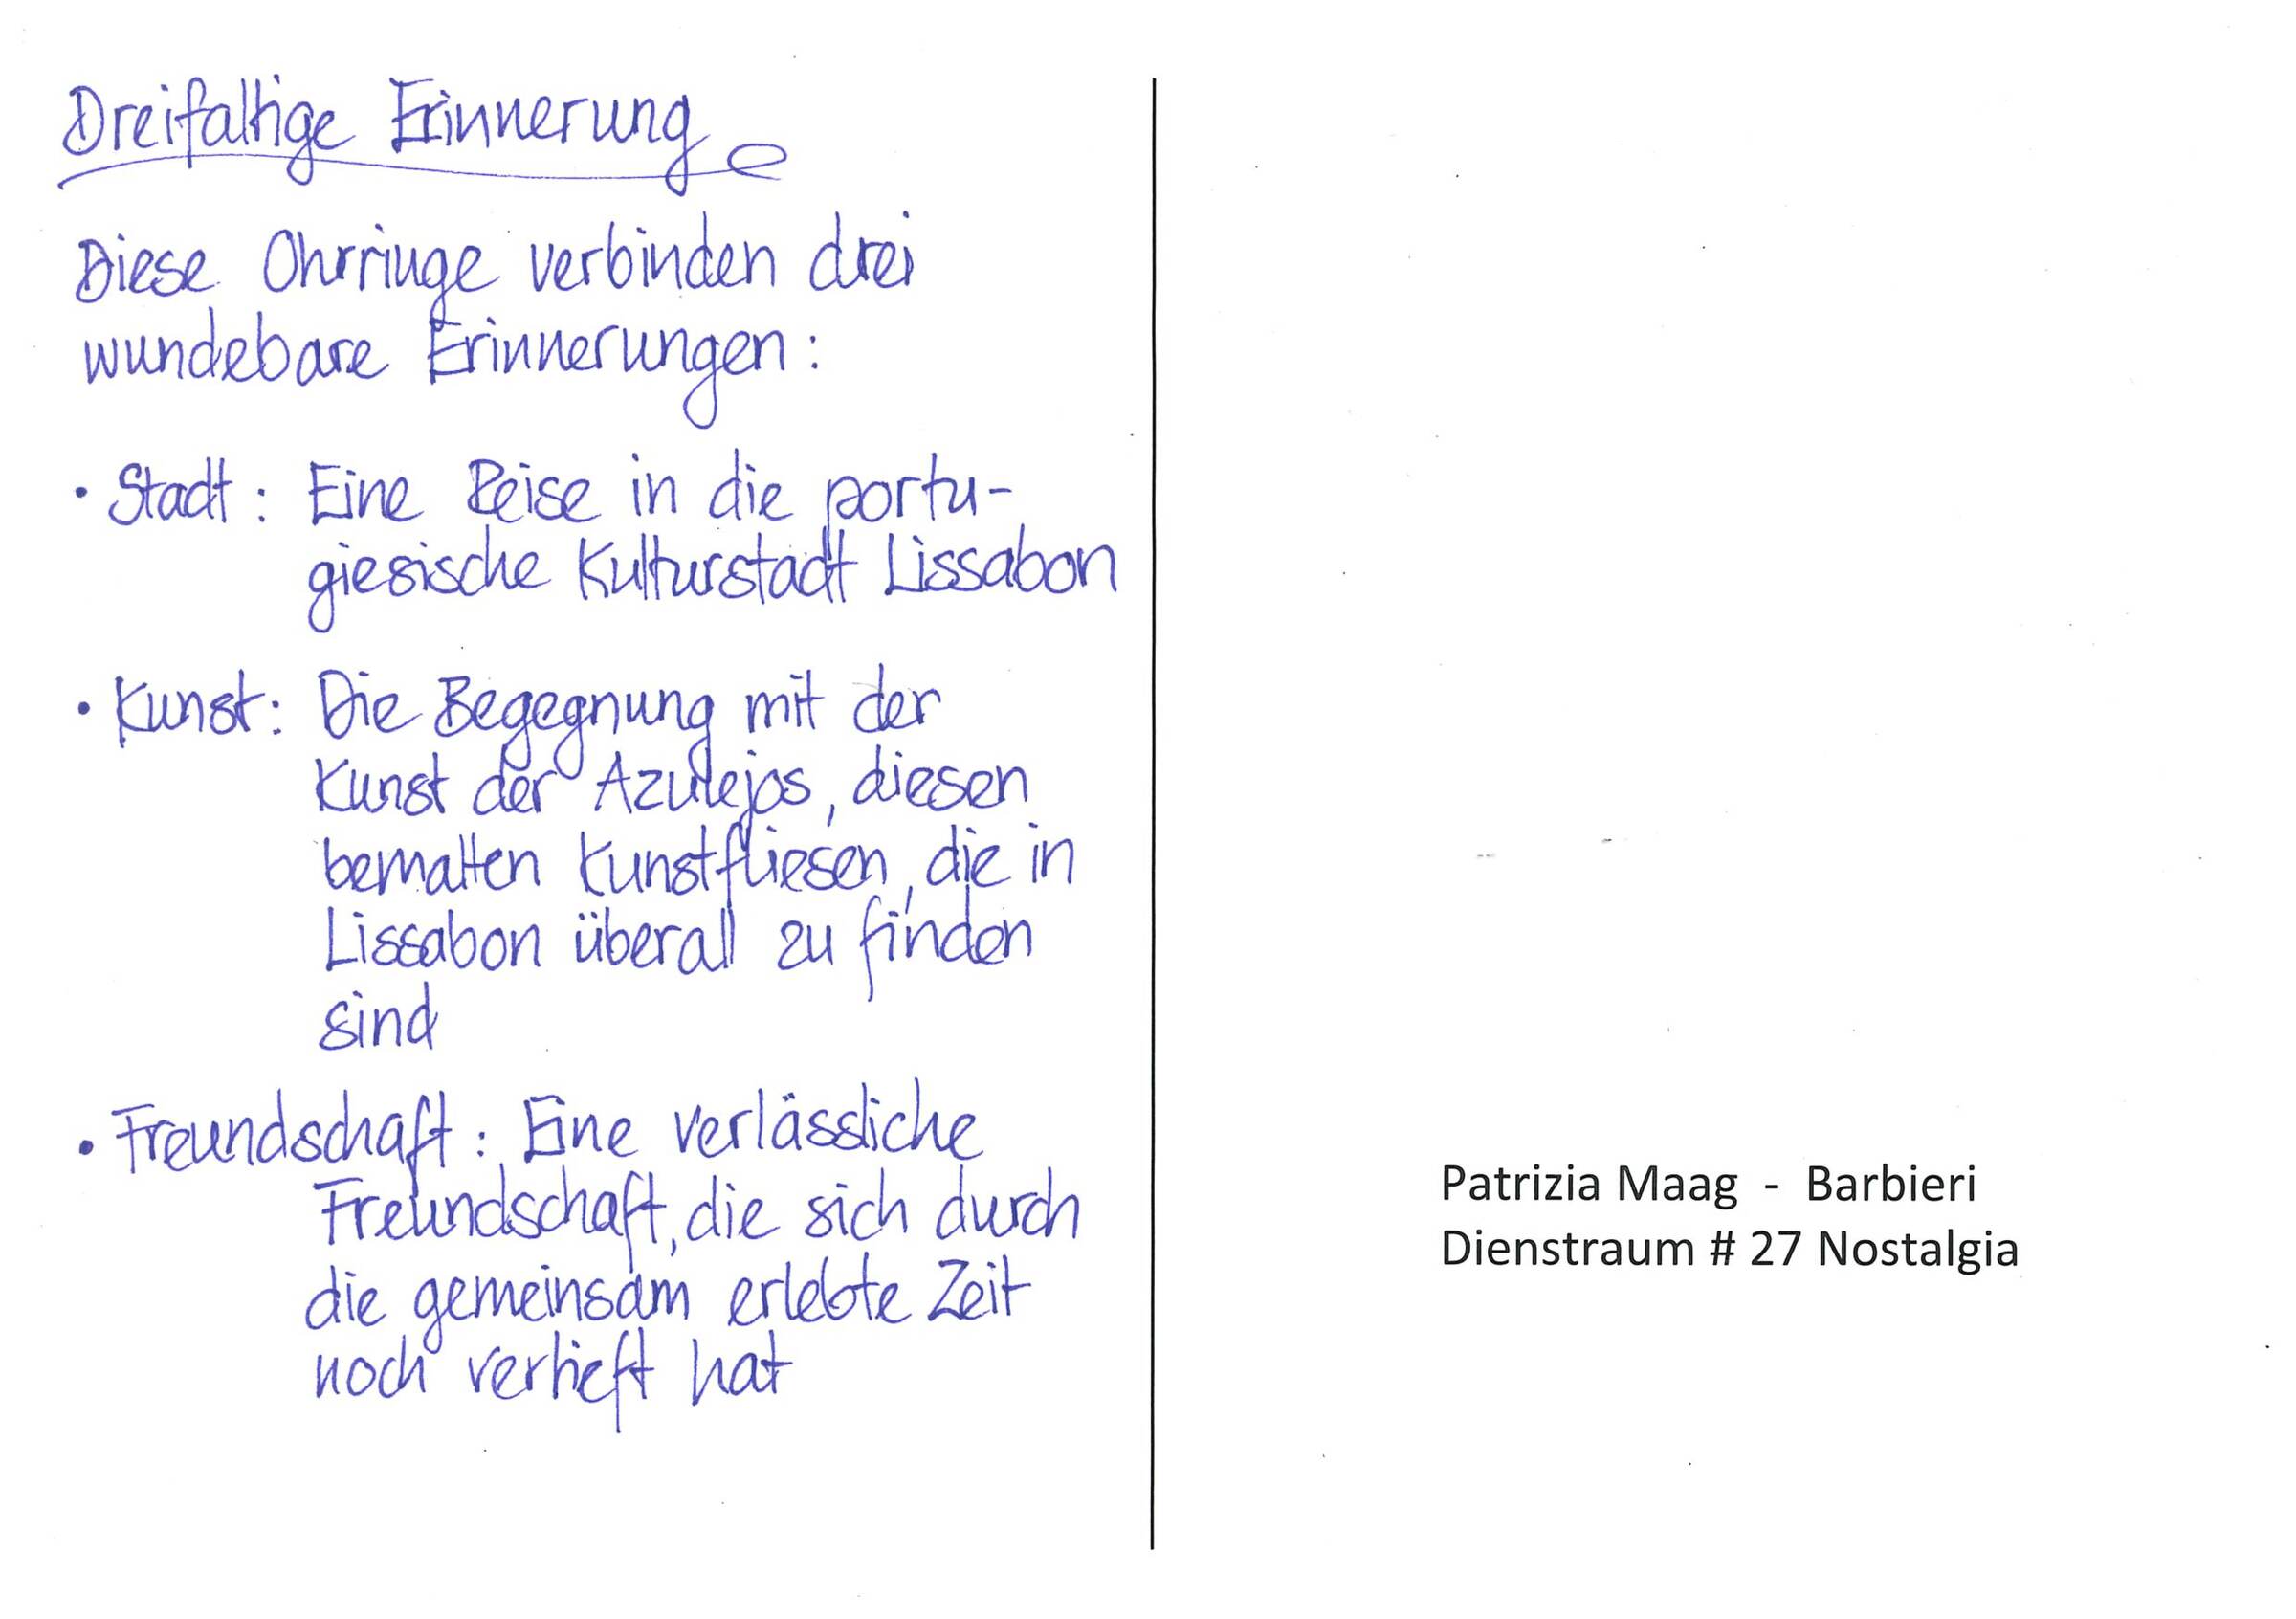 Dreifaltige Erinnerung
Diese Ohrringe verbinden drei
wundebare Erinnerungen:
• Stadt: Eine Reise in die portu-
giesische Kulturstadt Lissabon
• Kunst: Die Begegnung mit der
Kunst der Azulejos, diesen
bemalten Kunstfliesen, die in
Lissabon überall zu finden
sind
• Freundschaft: Eine verlässliche
Freundschaft, die sich durch
die gemeinsam erlebte Zeit
noch vertieft hat
Patrizia Maag - Barbieri
Dienstraum # 27 Nostalgia